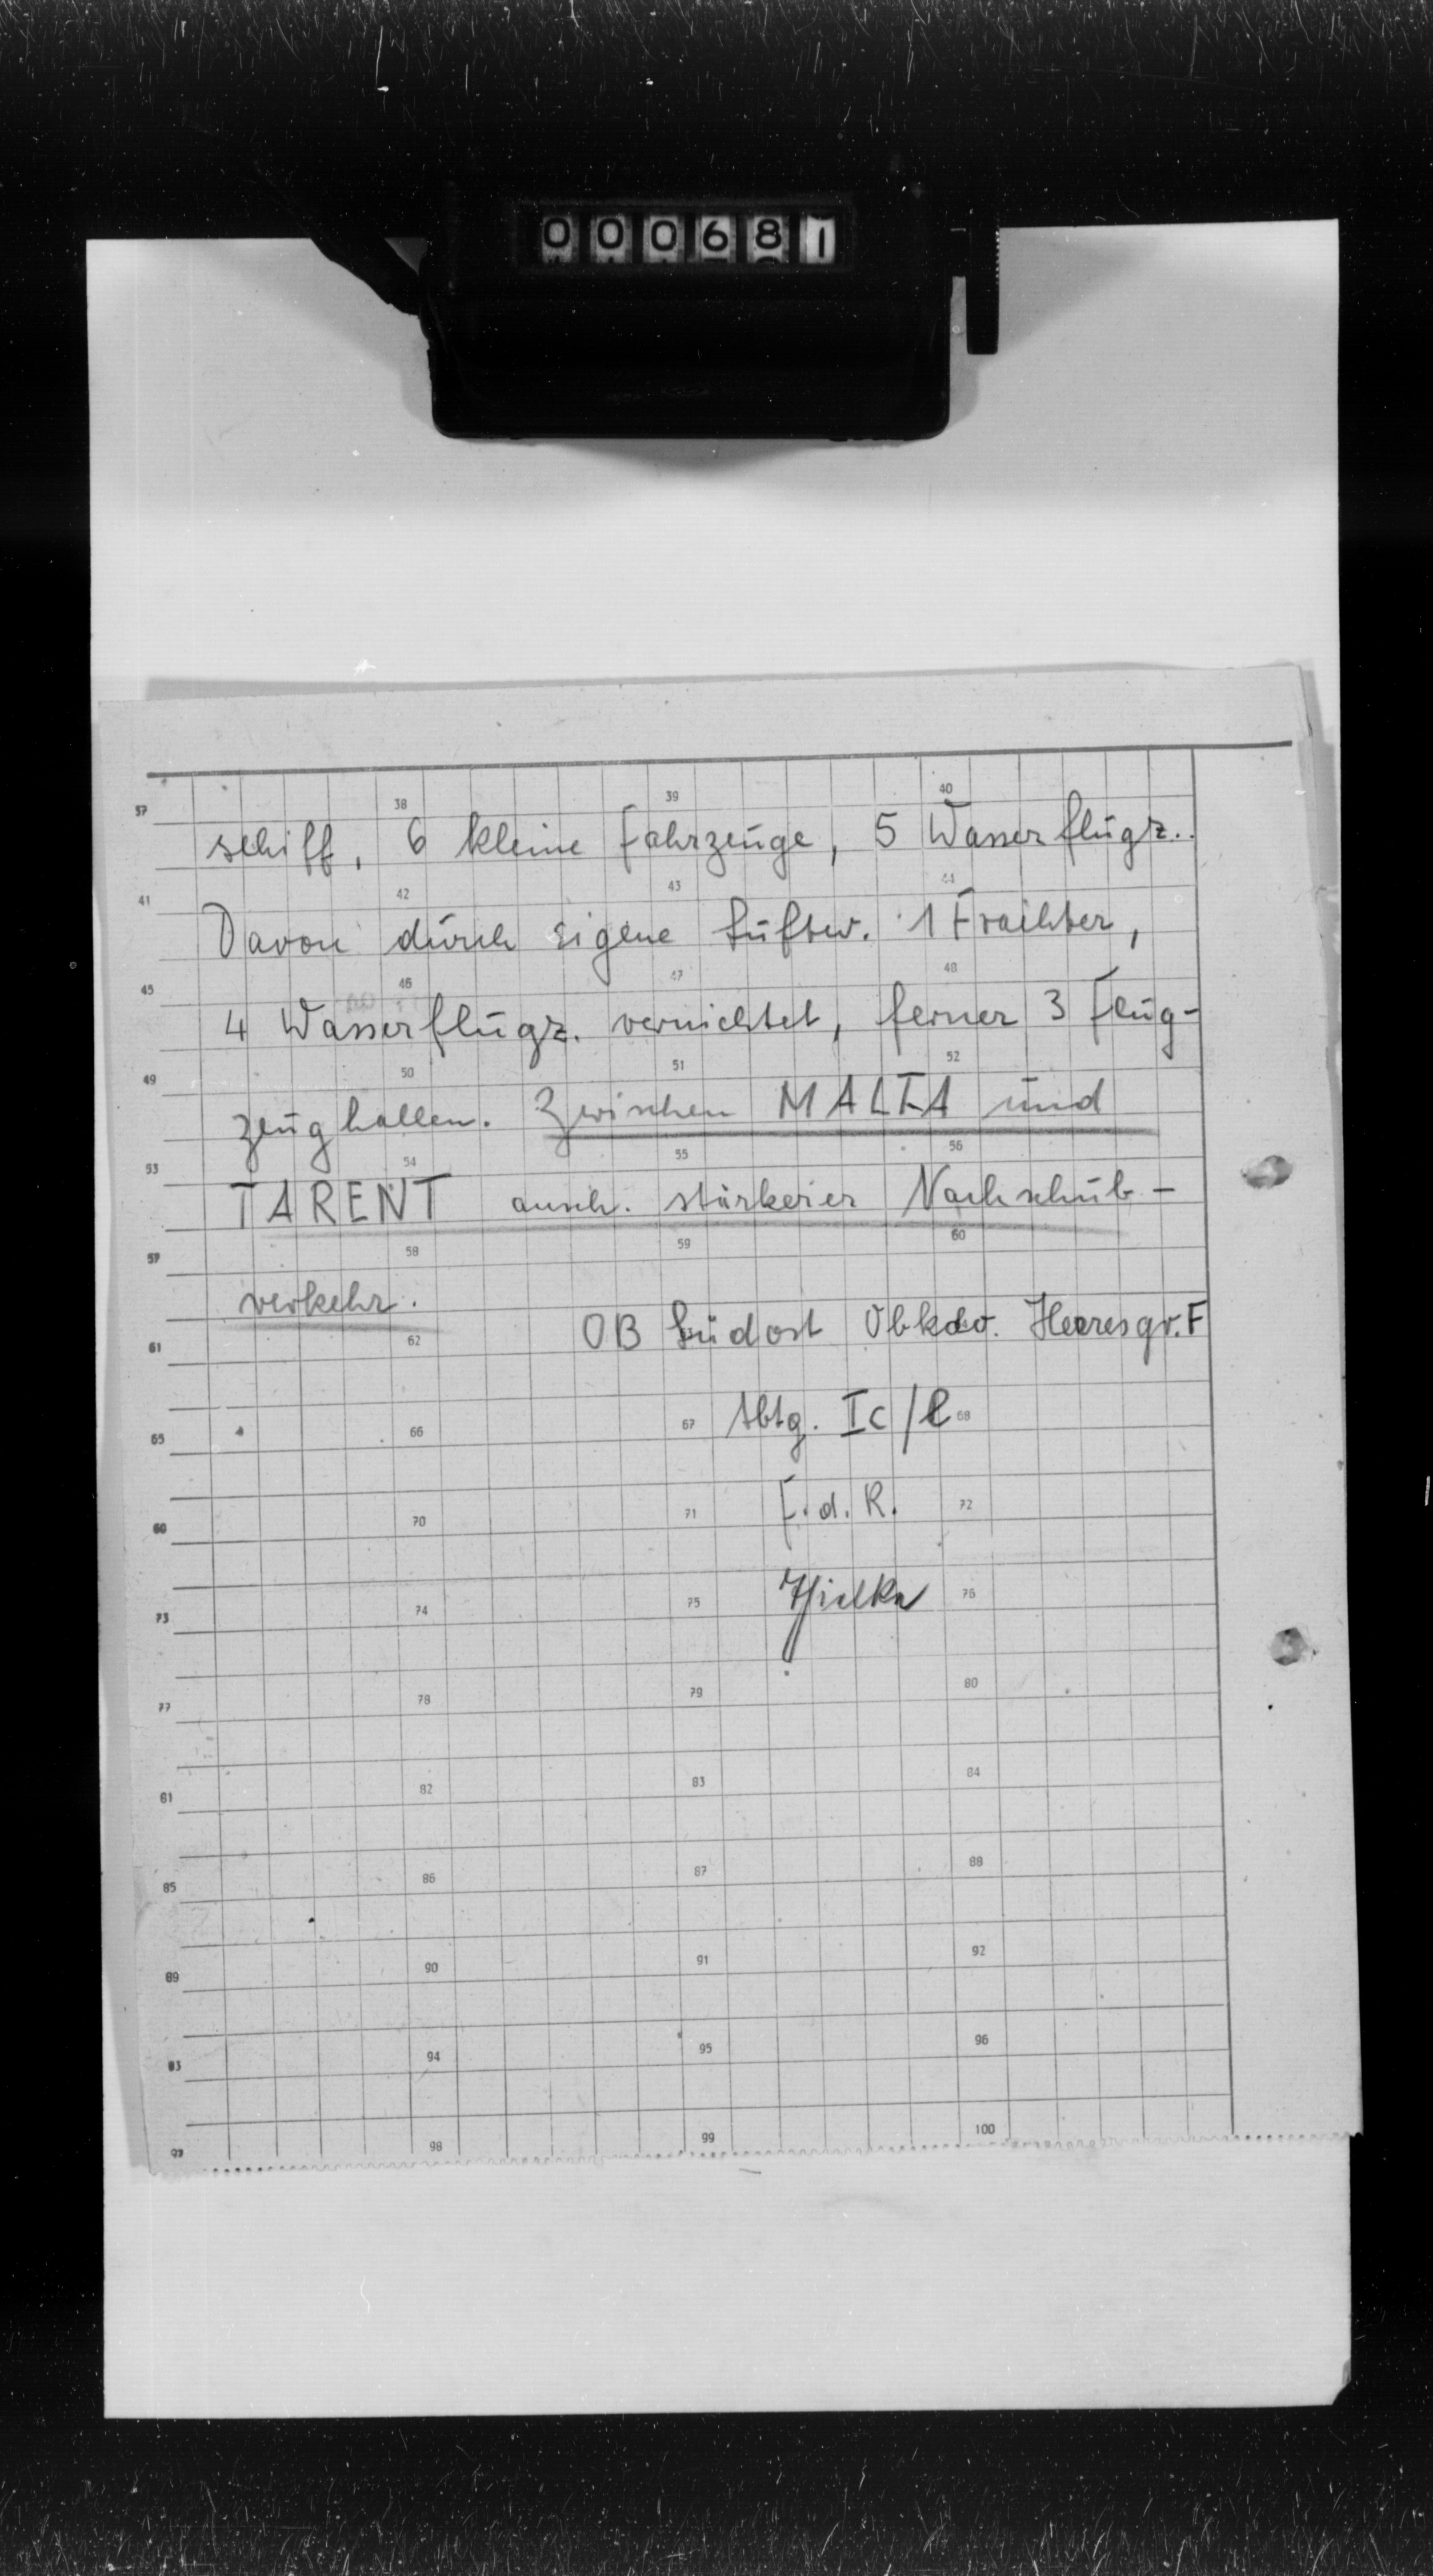 000681
37 38 39 40
schiff, 6 kleine Fahrzeuge, 5 Wasserflugz..
41 42 43 44
Davon durch eigene Luftw. 1 Frachter,
45 46 47 48
4 Wasserflugz. vernichtet, ferner 3 Flug-
49 50 51 52
zeughallen. Zwischen MALTA und
53 54 55 56
TARENT ansch. stärkerer Nachschub-
57 58 59 60
verkehr.
OB Südost Obkdo. Heeresgr. F
61 62
Abtg. Ic/
65 66 67 68
F. d. R.
69 70 71 72
73 74 75 76
77 78 79 80
81 82 83 84
85 86 87 88
89 90 91 92
93 94 95 96
97 98 99 100